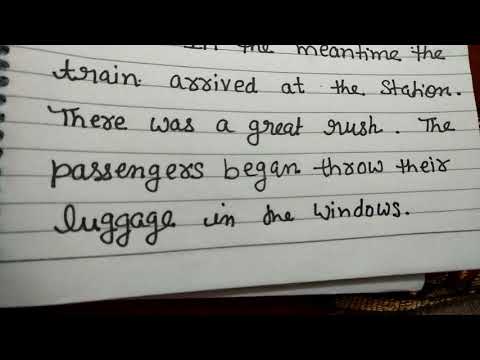 In the meantime the
train arrived at the station.
There was a great rush. The
passengers began throw their
luggage in the windows.